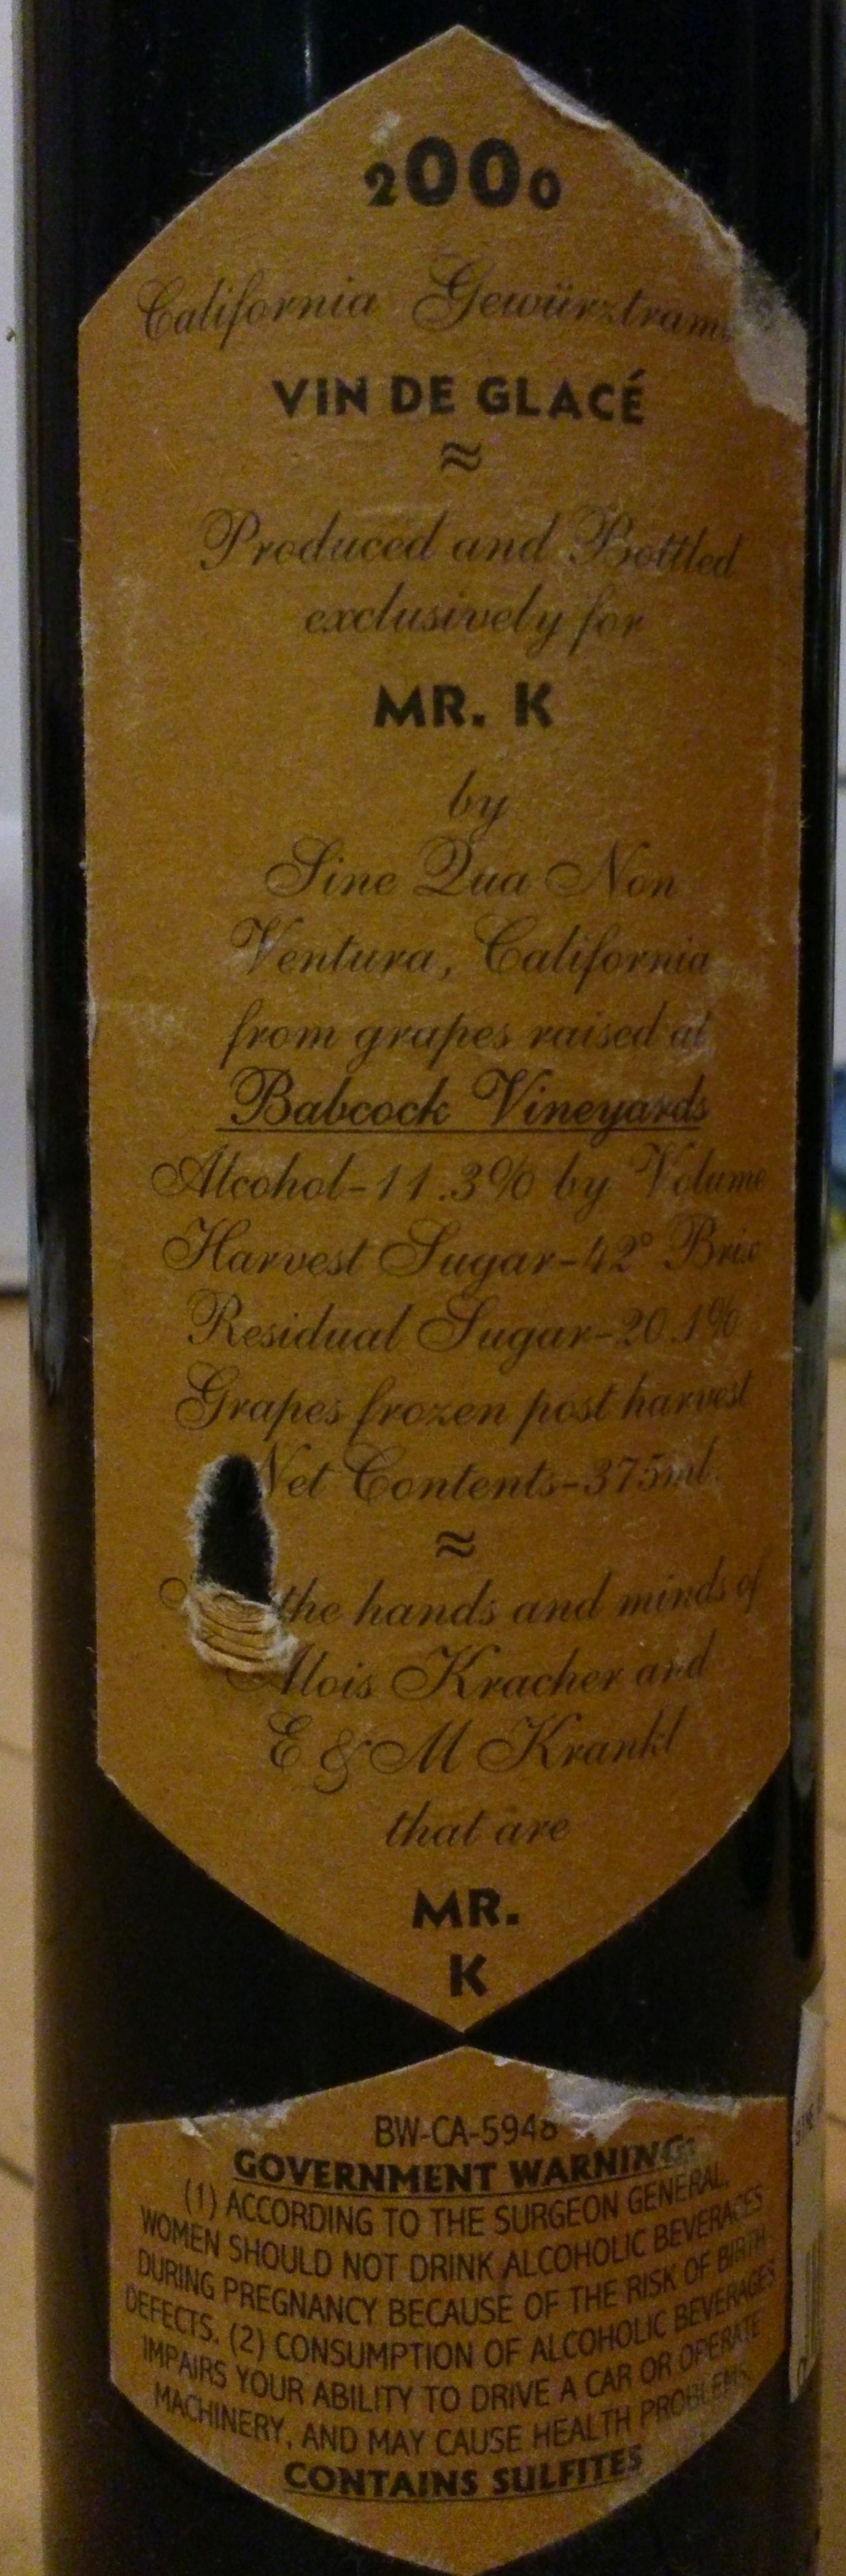 2000
California Gewürztram
VIN DE GLACÉ
≈
Produced and Bottled
exclusively for
MR. K
by
Sine Qua Non
Ventura, California
from grapes raised at
Babcock Vineyards
Alcohol-11.3% by Volume
Harvest Sugar-42° Brix
Residual Sugar-20.1%
Grapes frozen post harvest
Net Contents-375ml.
≈
the hands and minds of
Alois Kracher and
E & M Krankl
that are
MR.
K
BW-CA-5948
GOVERNMENT WARNING:
(1) ACCORDING TO THE SURGEON GENERAL,
WOMEN SHOULD NOT DRINK ALCOHOLIC BEVERAGES
DURING PREGNANCY BECAUSE OF THE RISK OF BIRTH
DEFECTS. (2) CONSUMPTION OF ALCOHOLIC BEVERAGES
IMPAIRS YOUR ABILITY TO DRIVE A CAR OR OPERATE
MACHINERY, AND MAY CAUSE HEALTH PROBLEMS.
CONTAINS SULFITES